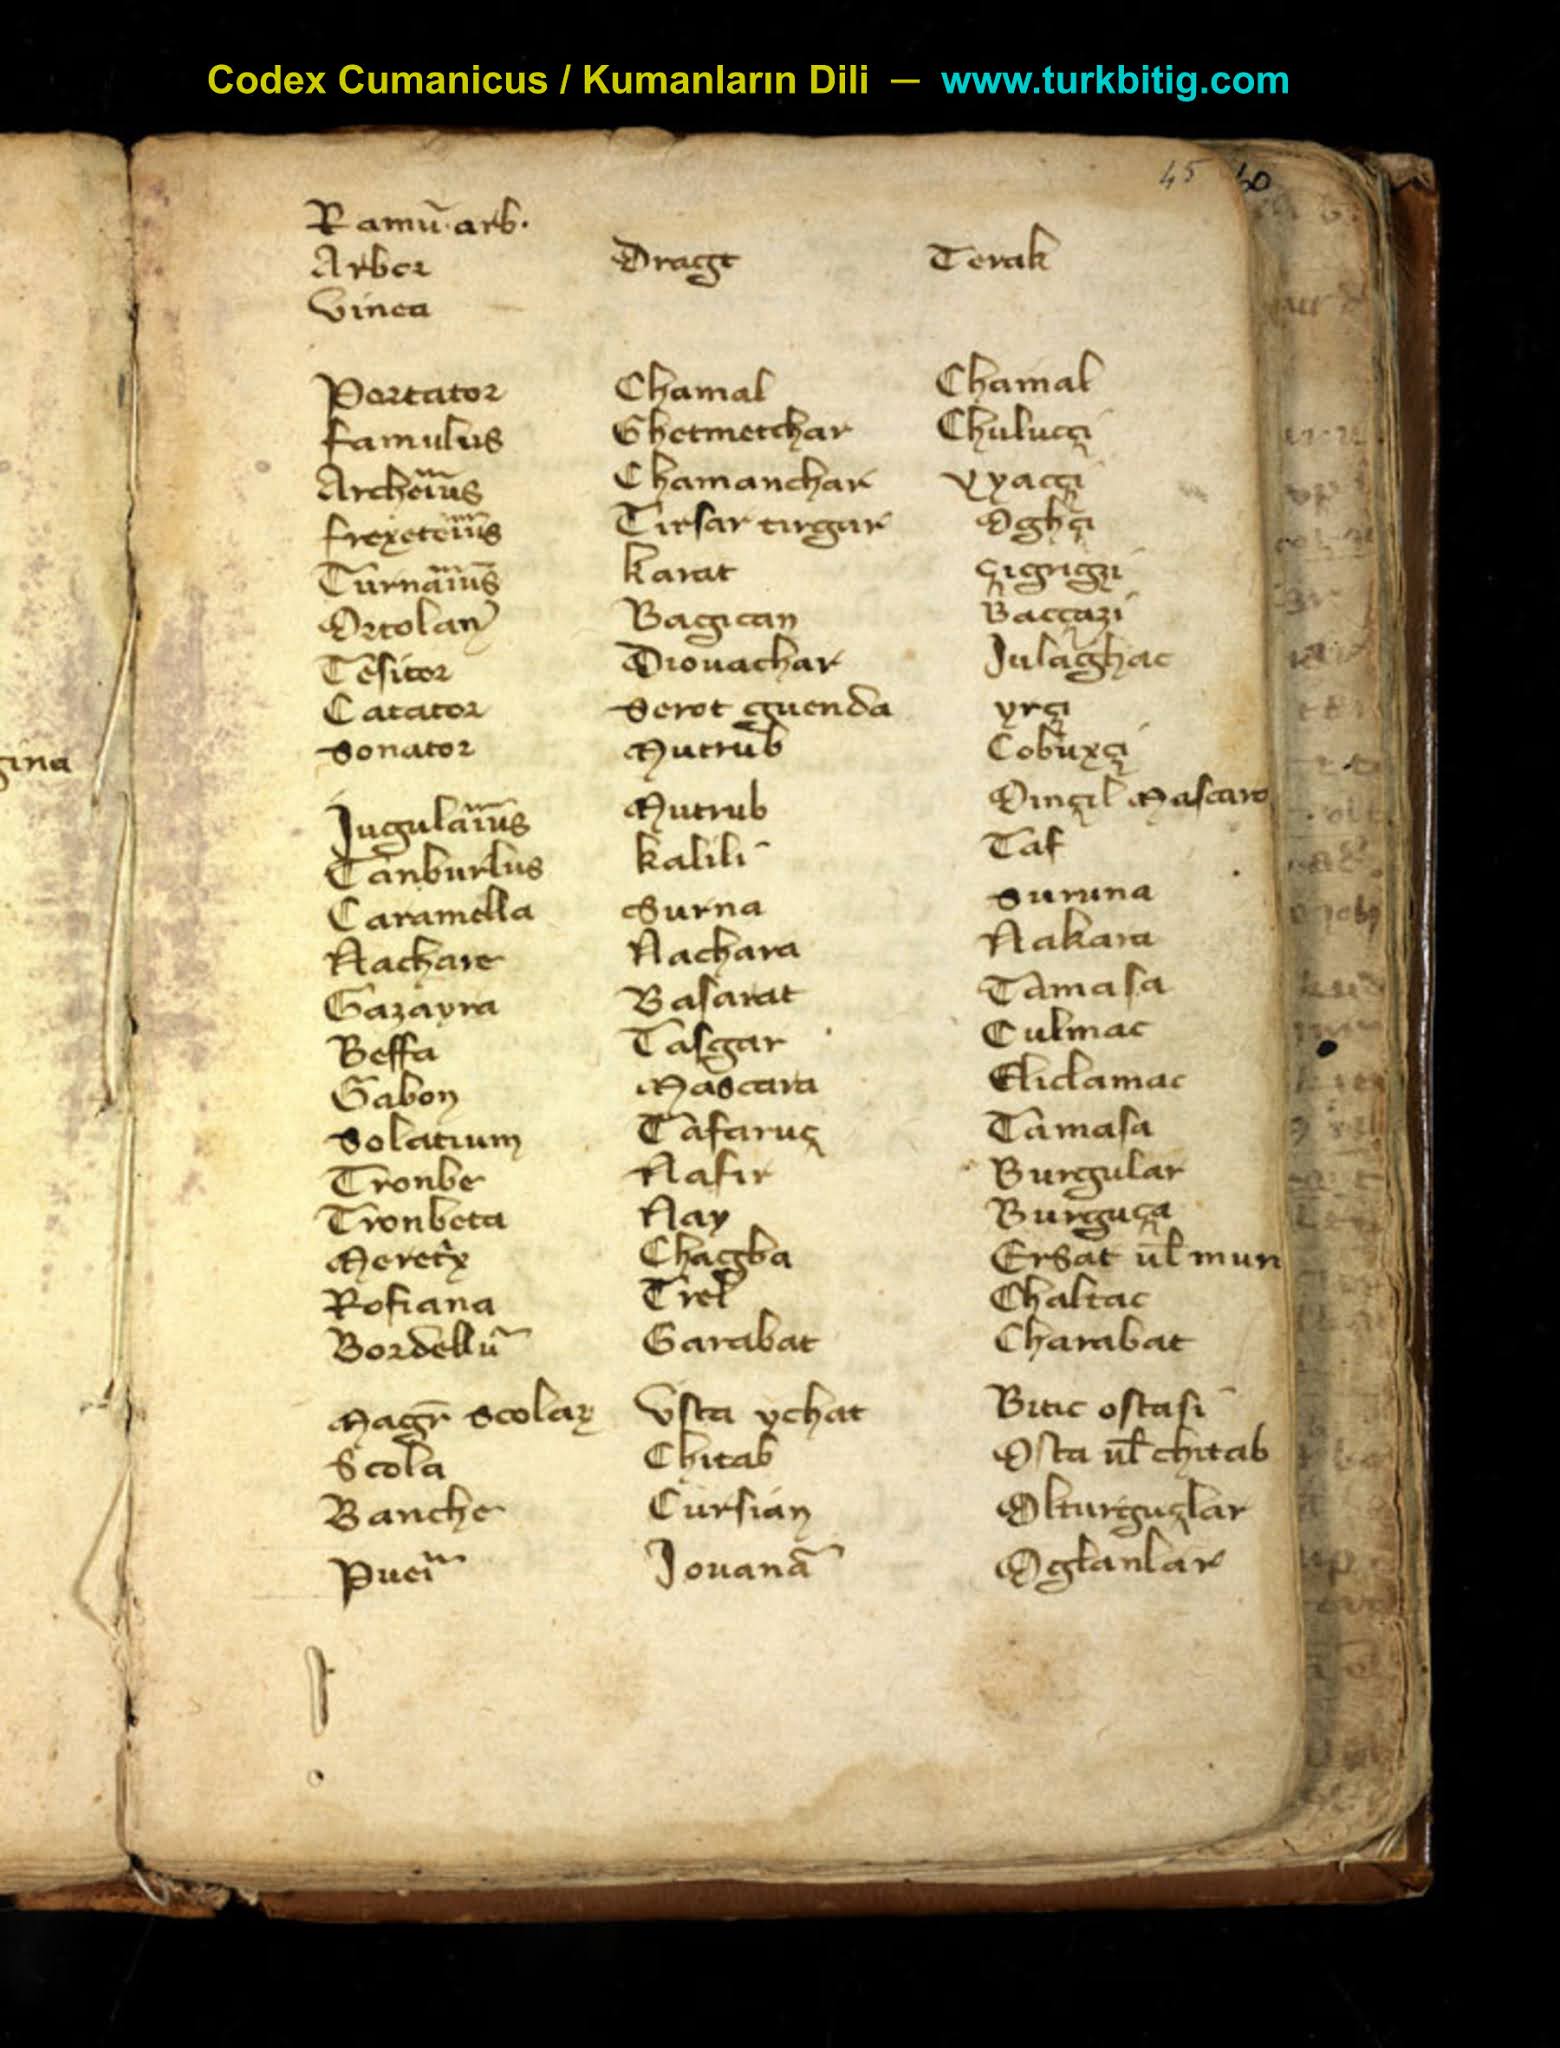 Codex Cumanicus / Kumanların Dili — www.turkbitig.com
45 60
Ramū arb.
Arbor Dragt Terak
vinea
Portator Chamal Chamal
famulus Ghetmetchar Chulucçi
Archerius Chamanchar yyacçi
frexeterius Tirsar tirgar Oghçi
Turnarius karat çigrigzi
Ortolan Bagican Baccazi
Tēsitor Diouachar Julaghac
Cātator Serot guenda yrçi
Sonator Mutrub Cobuxçi
Jugularius Mutrub Oinçil Mascara
Tanburlus kalili Taf
Caramella Surna Suruna
Nachare Nachara Nakara
Gazayra Basarat Tamasa
Beffa Tasgar Culmac
Gabon Mascara Eliclamac
Solatium Tafaruç Tamasa
Tronbe Nafir Burgular
Tronbeta Nay Burguça
Meretx Chagba Ersat ul mun
Rofiana Trel Chaltac
Bordellū Garabat Charabat
Magr̄ scolaꝝ Vsta ychat Bitic ostasi
Scola Chitab Osta ul chitab
Banche Cursian Olturguçlar
Pueri Jouanā Oglanlar
gina